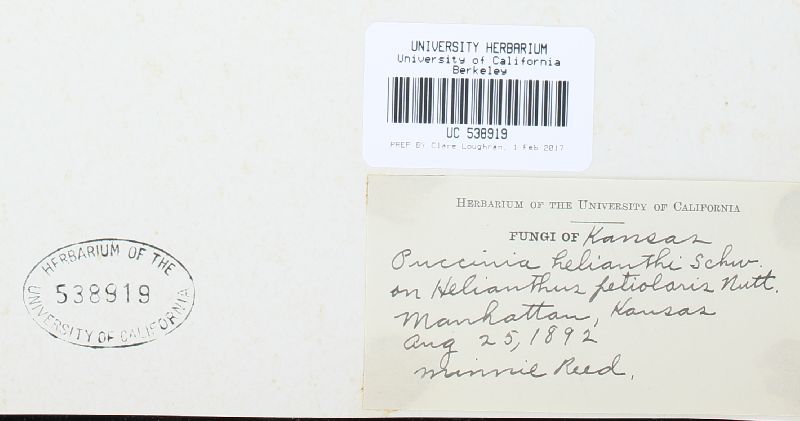 UNIVERSITY HERBARIUM
University of California
Berkeley
UC 538919
PREP BY Clare Loughran, 1 Feb 2017
HERBARIUM OF THE UNIVERSITY OF CALIFORNIA
FUNGI OF Kansas
Puccinia helianthi Schw.
on Helianthus petiolaris Nutt.
Manhattan, Kansas
Aug 25, 1892
Minnie Reed.
HERBARIUM OF THE
538919
UNIVERSITY OF CALIFORNIA